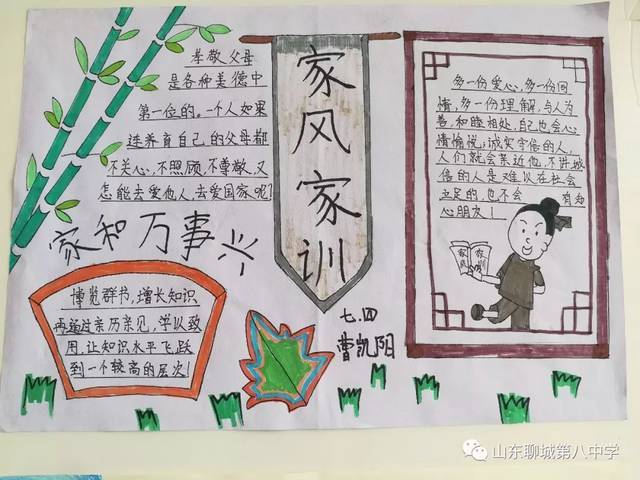 孝敬父母
是各种美德中
第一位的。一个人如果
连养育自己的父母都
不关心,不照顾,不尊敬,又
怎能去爱他人,去爱国家呢?
家和万事兴
博览群书,增长知识
再通过亲历亲见,学以致
用,让知识水平飞跃
到一个较高的层次!
家风家训
七.四
曹凯阳
多一份爱心,多一份回
情,多一份理解,与人为
善,和睦相处,自己也会心
情愉悦;诚实守信的人,
人们就会靠近他,不讲诚
信的人是难以在社会
立足的,也不会 有知
心朋友!
家风 家训
山东聊城第八中学